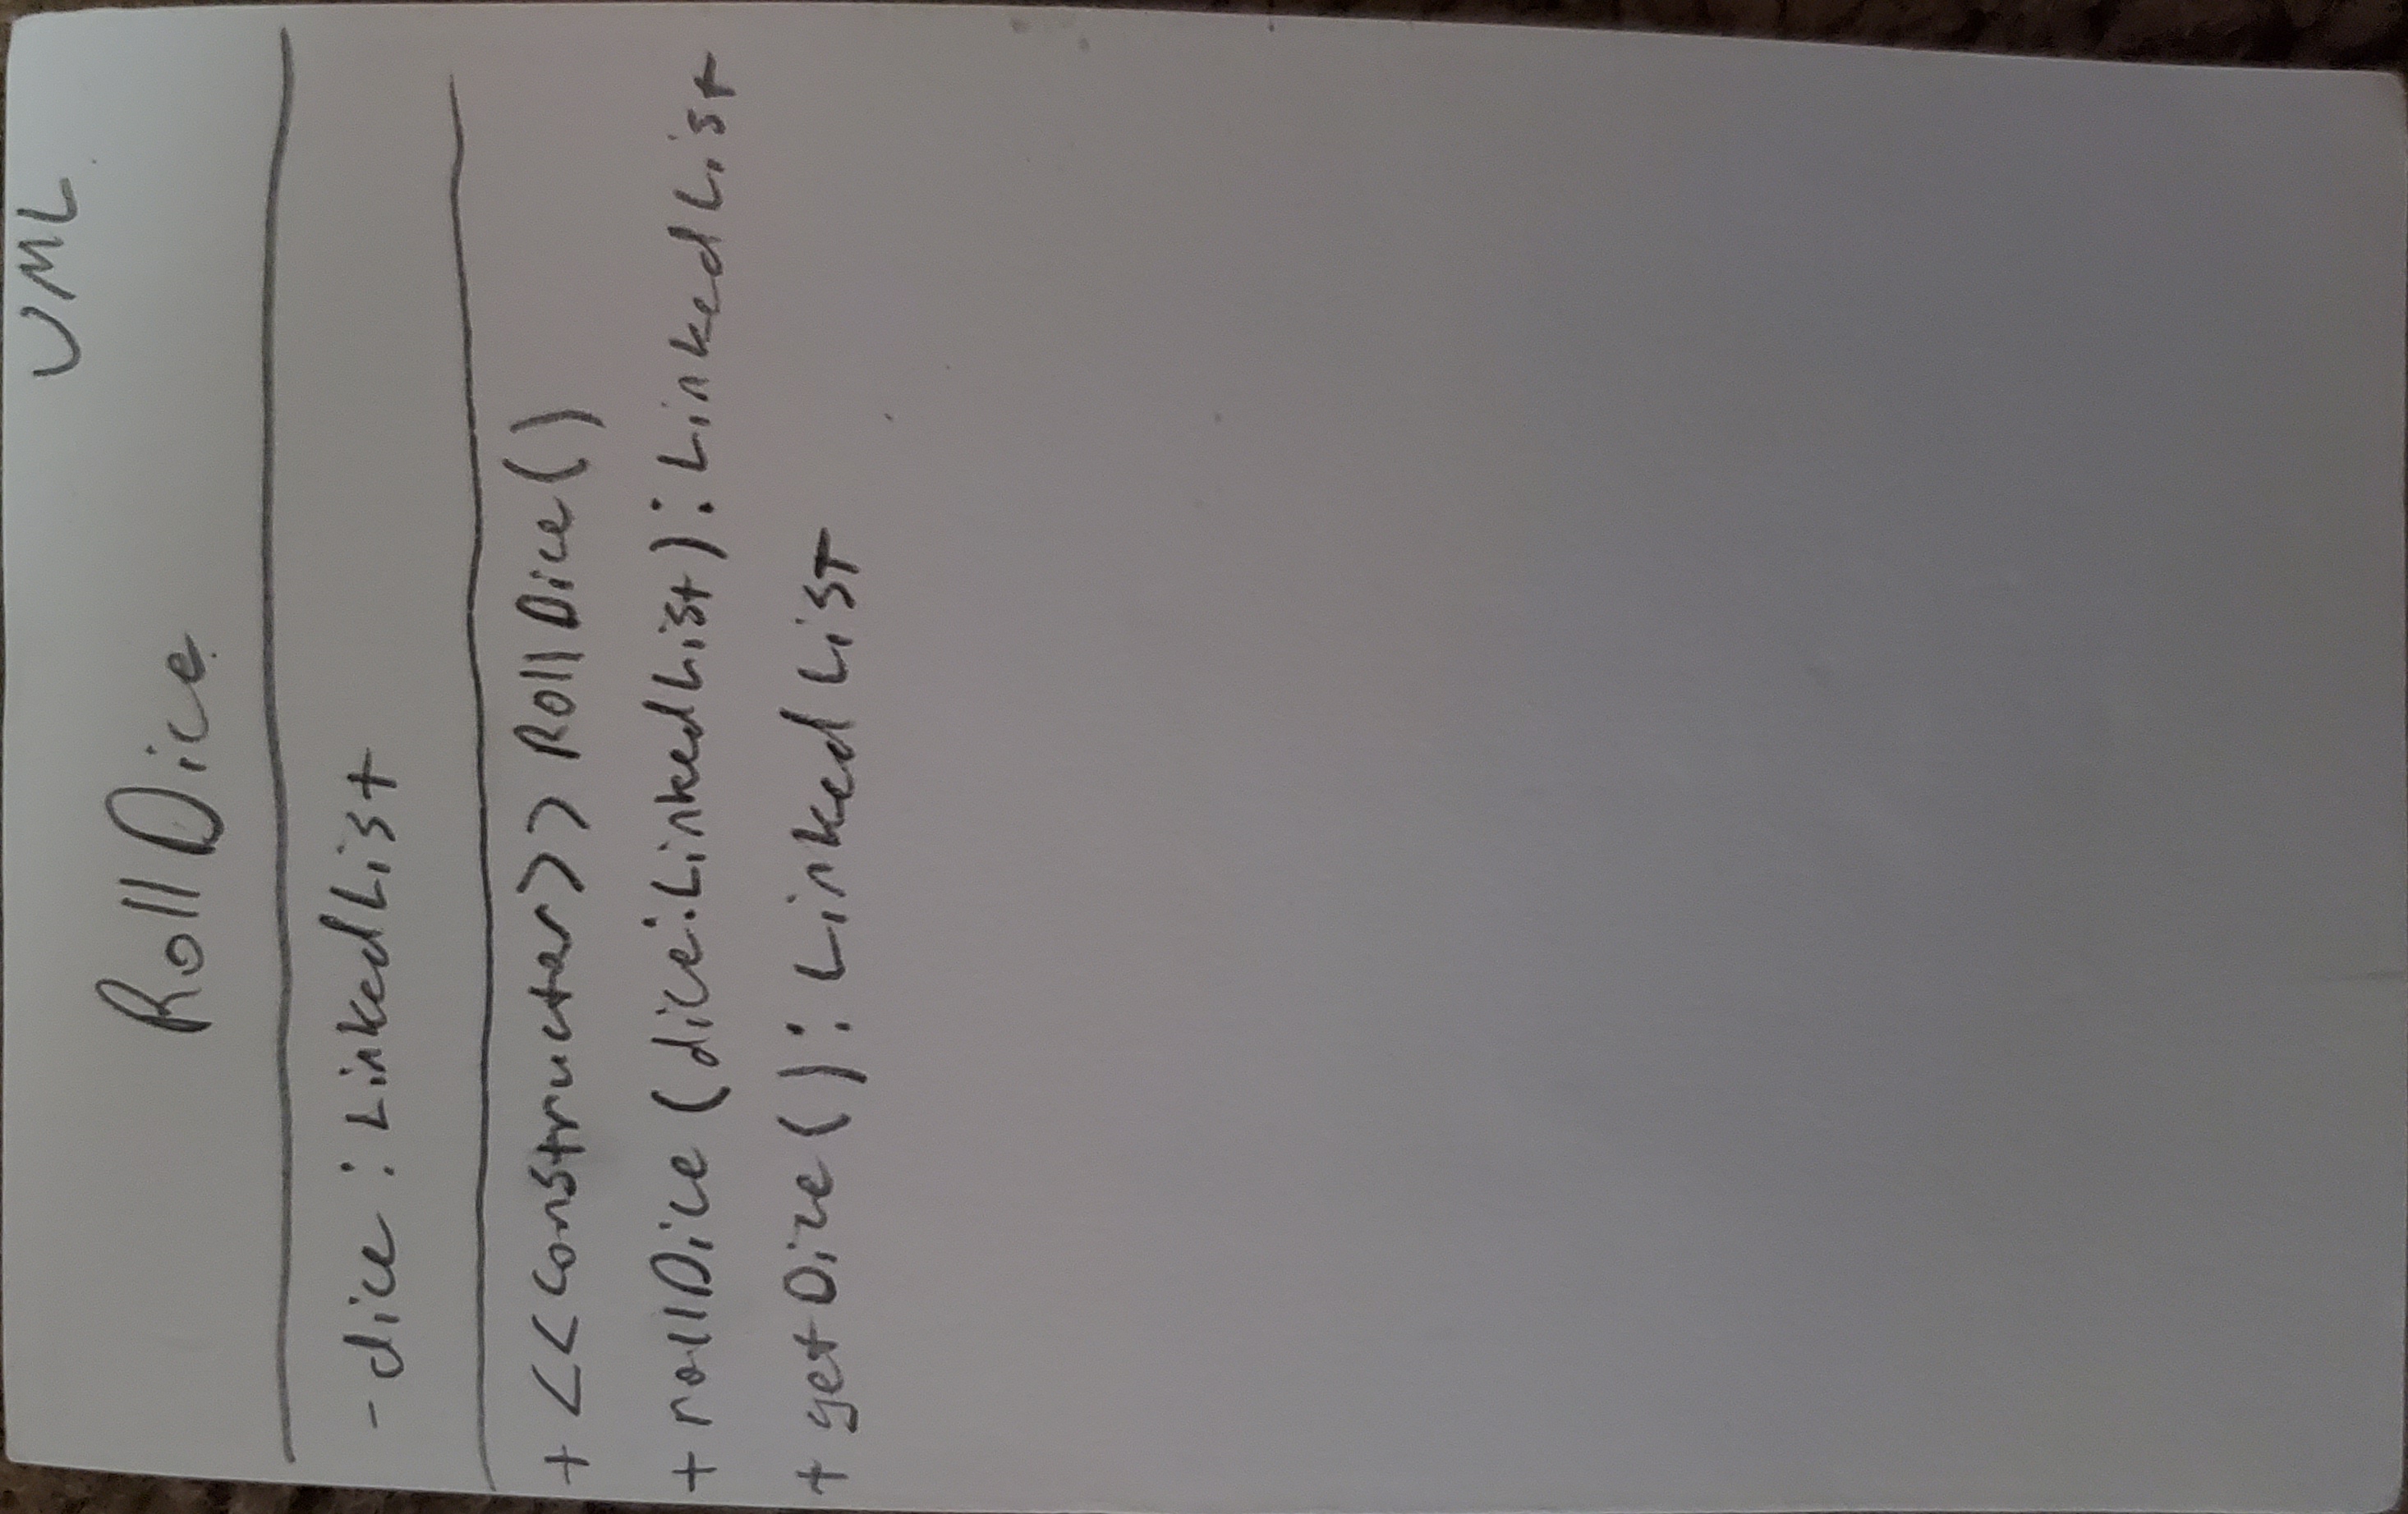 UML
RollDice
- dice : LinkedList
+ <<constructer>> RollDice()
+ rollDice (dice:LinkedList): LinkedList
+ getDice(): LinkedList